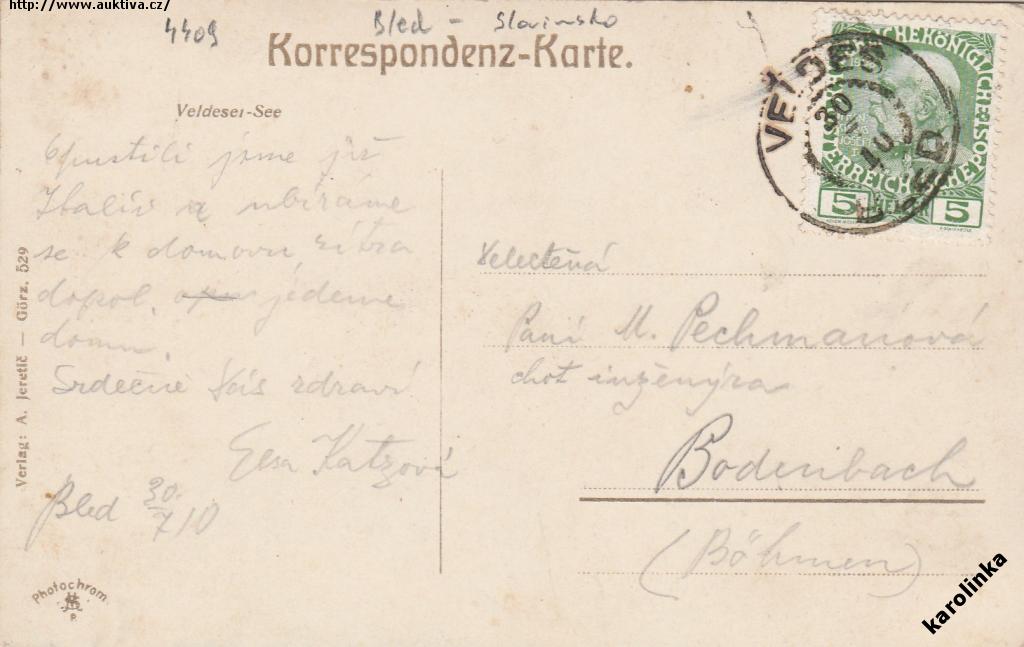 http://www.auktiva.cz/
4409
Bled - Slovinsko
Korrespondenz-Karte.
Veldeser-See
Opustili jsme již
Italii a ubíráme
se k domovu, zítra
dopol. jedeme
domu.
Srdečně Vás zdraví
Elsa Katzová
Bled 30/7 10
Verlag: A. Jeretič — Görz. 529
Photochrom
P.
VELDES
BLED
30
10
5
5
Velectěná
Paní M. Pechmanová
chot inženýra
Bodenbach
(Böhmen)
karolinka